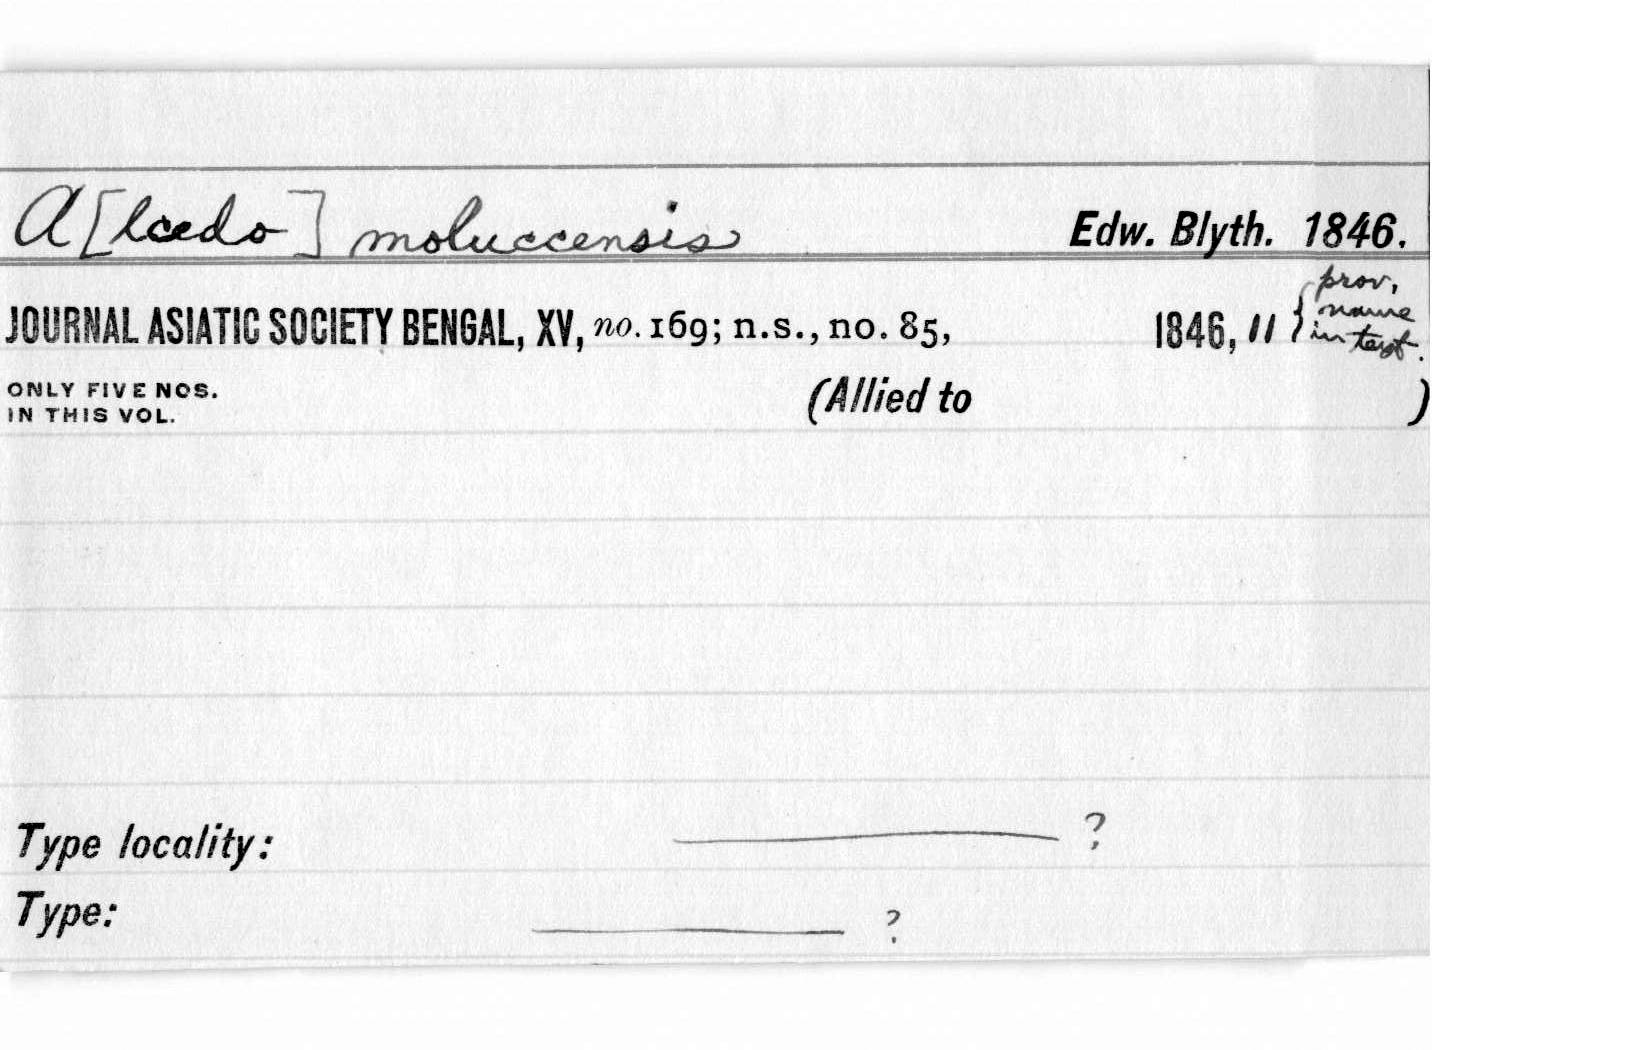 A[lcedo] moluccensis Edw. Blyth. 1846.
JOURNAL ASIATIC SOCIETY BENGAL, XV, no. 169; n.s., no. 85, 1846, 11 { prov. name in text.
ONLY FIVE NOS.
IN THIS VOL.
(Allied to )
Type locality: ——— ?
Type: ——— ?